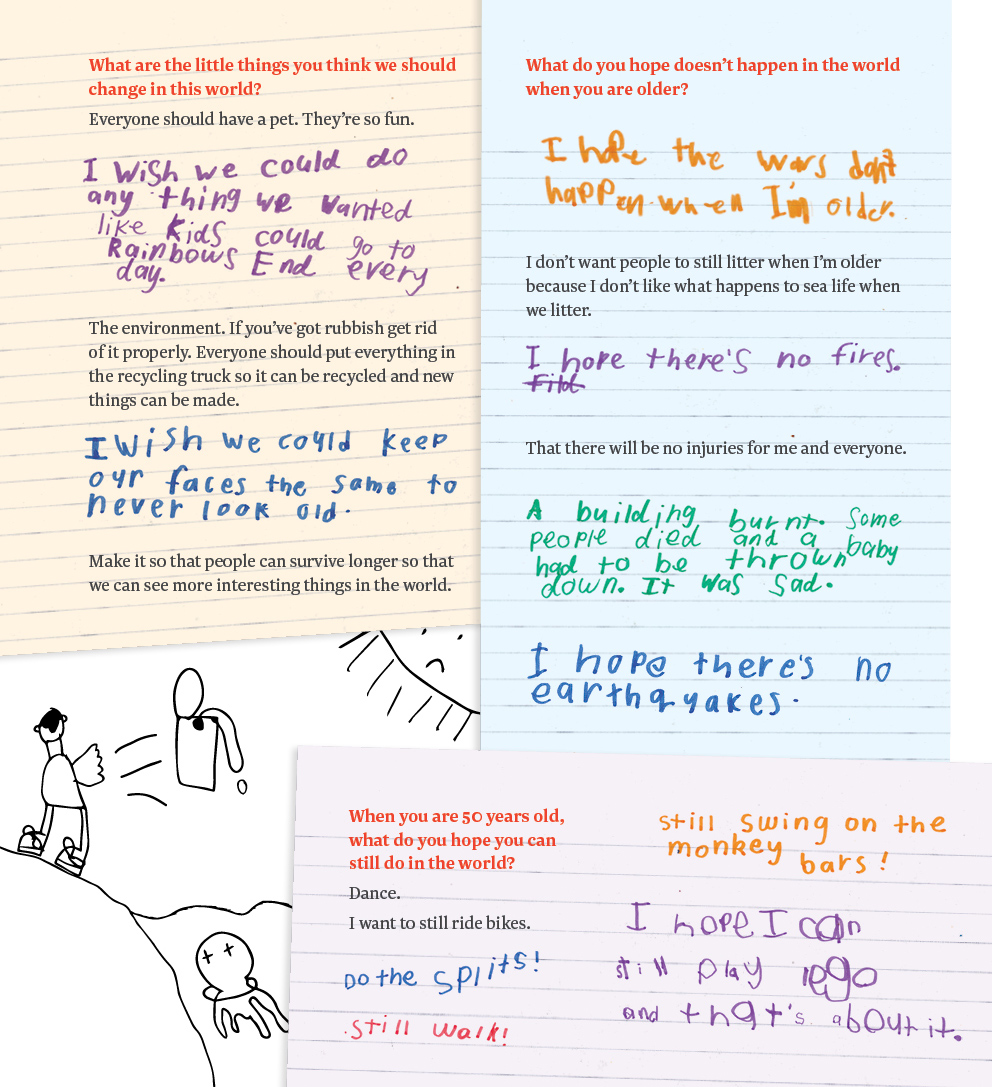 What are the little things you think we should
change in this world?
Everyone should have a pet. They're so fun.
I Wish we could do
any thing we wanted
like kids could go to
Rainbows End every
day.
The environment. If you've got rubbish get rid
of it properly. Everyone should put everything in
the recycling truck so it can be recycled and new
things can be made.
I Wish we could keep
our faces the same to
never look old.
Make it so that people can survive longer so that
we can see more interesting things in the world.
What do you hope doesn't happen in the world
when you are older?
I hope the wars don't
happen when I'm older.
I don't want people to still litter when I'm older
because I don't like what happens to sea life when
we litter.
I hope there's no fires.
That there will be no injuries for me and everyone.
A building burnt. Some
people died and a baby
had to be thrown
down. It was sad.
I hope there's no
earthquakes.
When you are 50 years old,
what do you hope you can
still do in the world?
Dance.
I want to still ride bikes.
Do the splits!
still walk!
still swing on the
monkey bars!
I hope I can
still play lego
and that's about it.